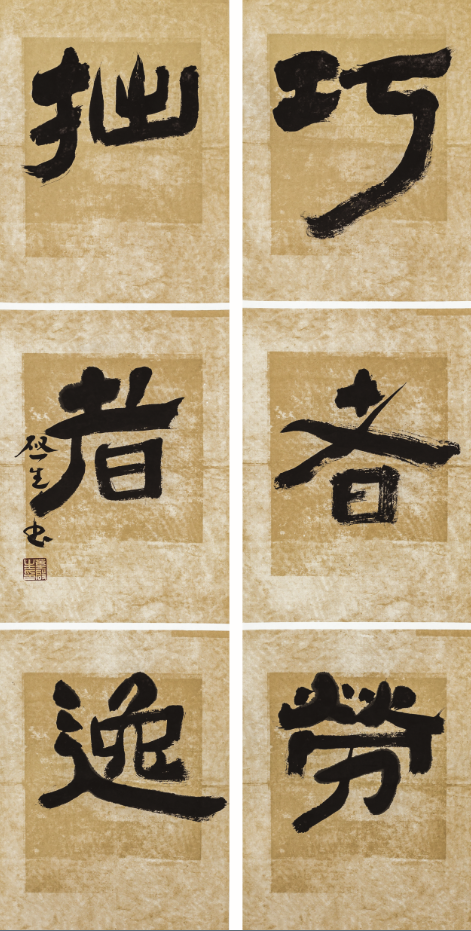 巧者勞
拙者逸
生书